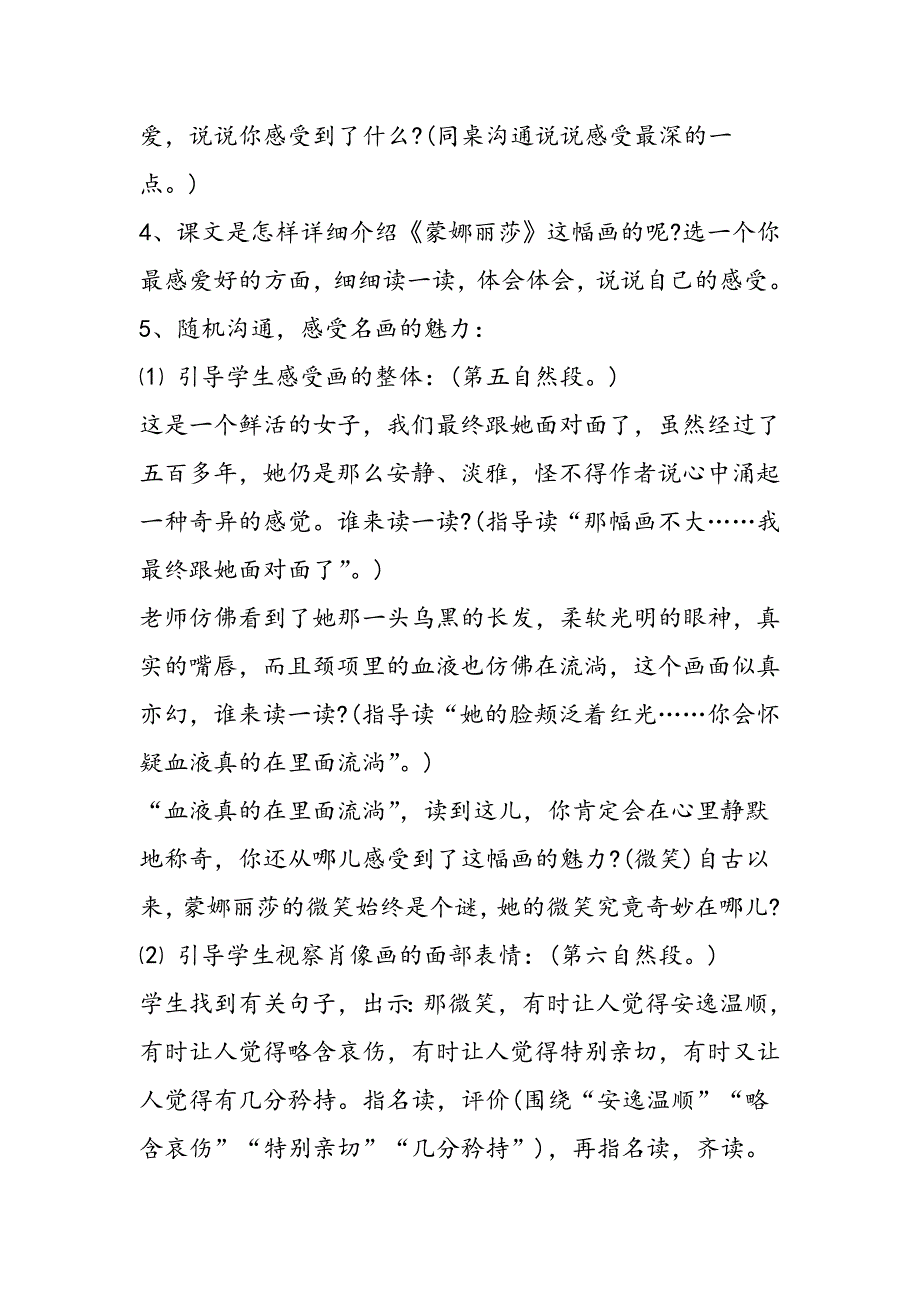 爱，说说你感受到了什么?(同桌沟通说说感受最深的一
点。)
4、课文是怎样详细介绍《蒙娜丽莎》这幅画的呢?选一个你
最感爱好的方面，细细读一读，体会体会，说说自己的感受。
5、随机沟通，感受名画的魅力：
⑴ 引导学生感受画的整体：(第五自然段。)
这是一个鲜活的女子，我们最终跟她面对面了，虽然经过了
五百多年，她仍是那么安静、淡雅，怪不得作者说心中涌起
一种奇异的感觉。谁来读一读?(指导读“那幅画不大……我
最终跟她面对面了”。)
老师仿佛看到了她那一头乌黑的长发，柔软光明的眼神，真
实的嘴唇，而且颈项里的血液也仿佛在流淌，这个画面似真
亦幻，谁来读一读?(指导读“她的脸颊泛着红光……你会怀
疑血液真的在里面流淌”。)
“血液真的在里面流淌”，读到这儿，你肯定会在心里静默
地称奇，你还从哪儿感受到了这幅画的魅力?(微笑)自古以
来，蒙娜丽莎的微笑始终是个谜，她的微笑究竟奇妙在哪儿?
⑵ 引导学生视察肖像画的面部表情：(第六自然段。)
学生找到有关句子，出示：那微笑，有时让人觉得安逸温顺，
有时让人觉得略含哀伤，有时让人觉得特别亲切，有时又让
人觉得有几分矜持。指名读，评价(围绕“安逸温顺”“略
含哀伤”“特别亲切”“几分矜持”)，再指名读，齐读。